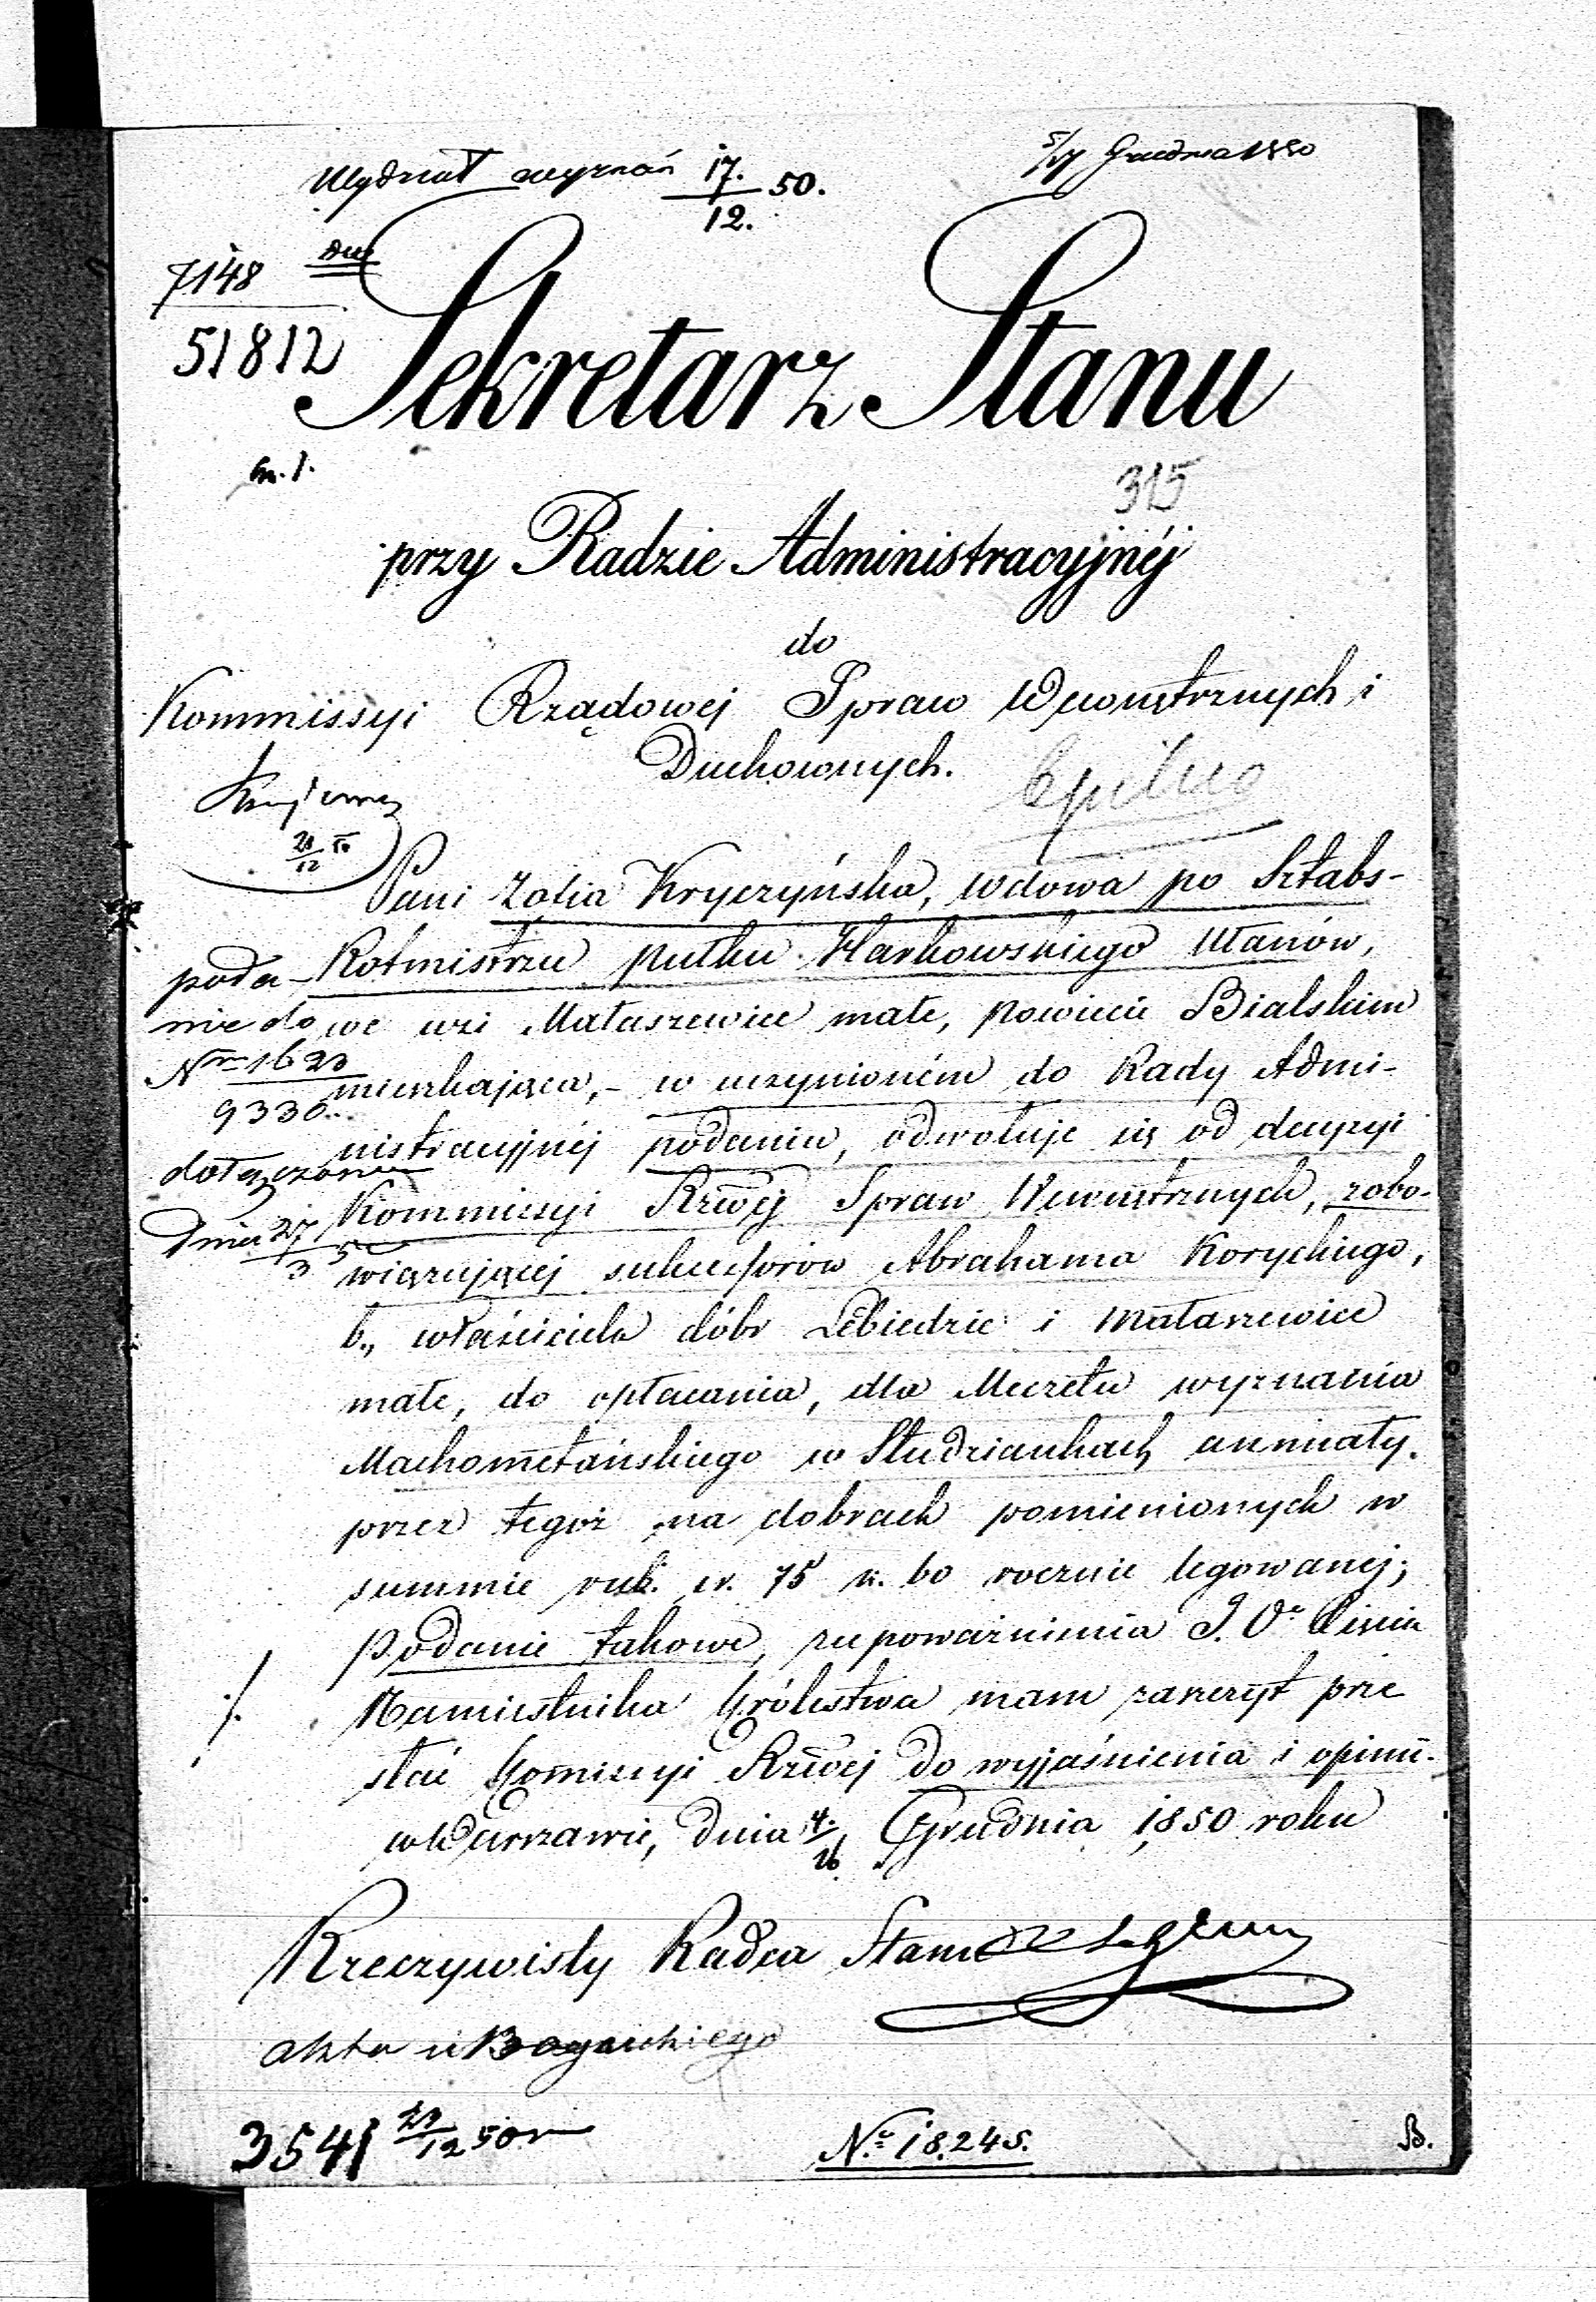 Wydział wyznań 17./12. 50.
5/17 Grudnia 1850
7148
51812
Sekretarz Stanu
315
przy Radzie Administracyjnéj
do
Kommissyi Rządowej Spraw Wewnętrznych i
Duchownych.
Pani Zofia Kryczyńska, wdowa po Sztabs-
Rotmistrzu pułku Harkowskiego Ułanów,
we wsi Małaszewice małe, powiecie Bialskim
mieszkająca, - w uczynioném do Rady Admi-
nistracyjnéj podaniu, odwołuje się od decyzyi
Kommissyi Rzwéj Spraw Wewnętrznych, zobo-
wiązującej sukcessorów Abrahama Koryckiego,
b., właściciela dóbr Lebiedzie i Małaszewice
małe, do opłacania, dla Meczetu wyznania
Machometańskiego w Studziankach annuaty,
przez tegoż na dobrach pomienionych w
summie rub. sr. 75 k. 60 rocznie legowanej;
Podanie takowe, z upoważnienia J. O. Xięcia
Namiestnika Królestwa mam zaszczyt prze
słać Kommissyi Rzwéj do wyjaśnienia i opinii.
w Warszawie, dnia 4/16 Grudnia 1850 roku
poda-
nie do
Nr 1623
9330
dołączone
Dnia 27/3
Rzeczywisty Radca Stanu
akta u Boguckiego
3541 23/12 50 r
No 18.245.
B.